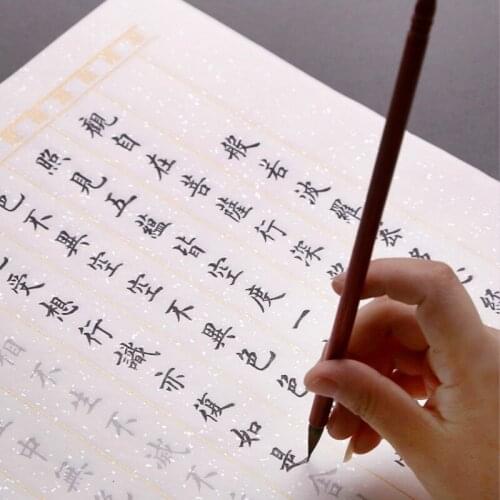 般若波羅蜜多心經
觀自在菩薩行深
照見五蘊皆空度一
色不異空空不異色色
受想行識亦復如是舍
相不生不滅不
中無